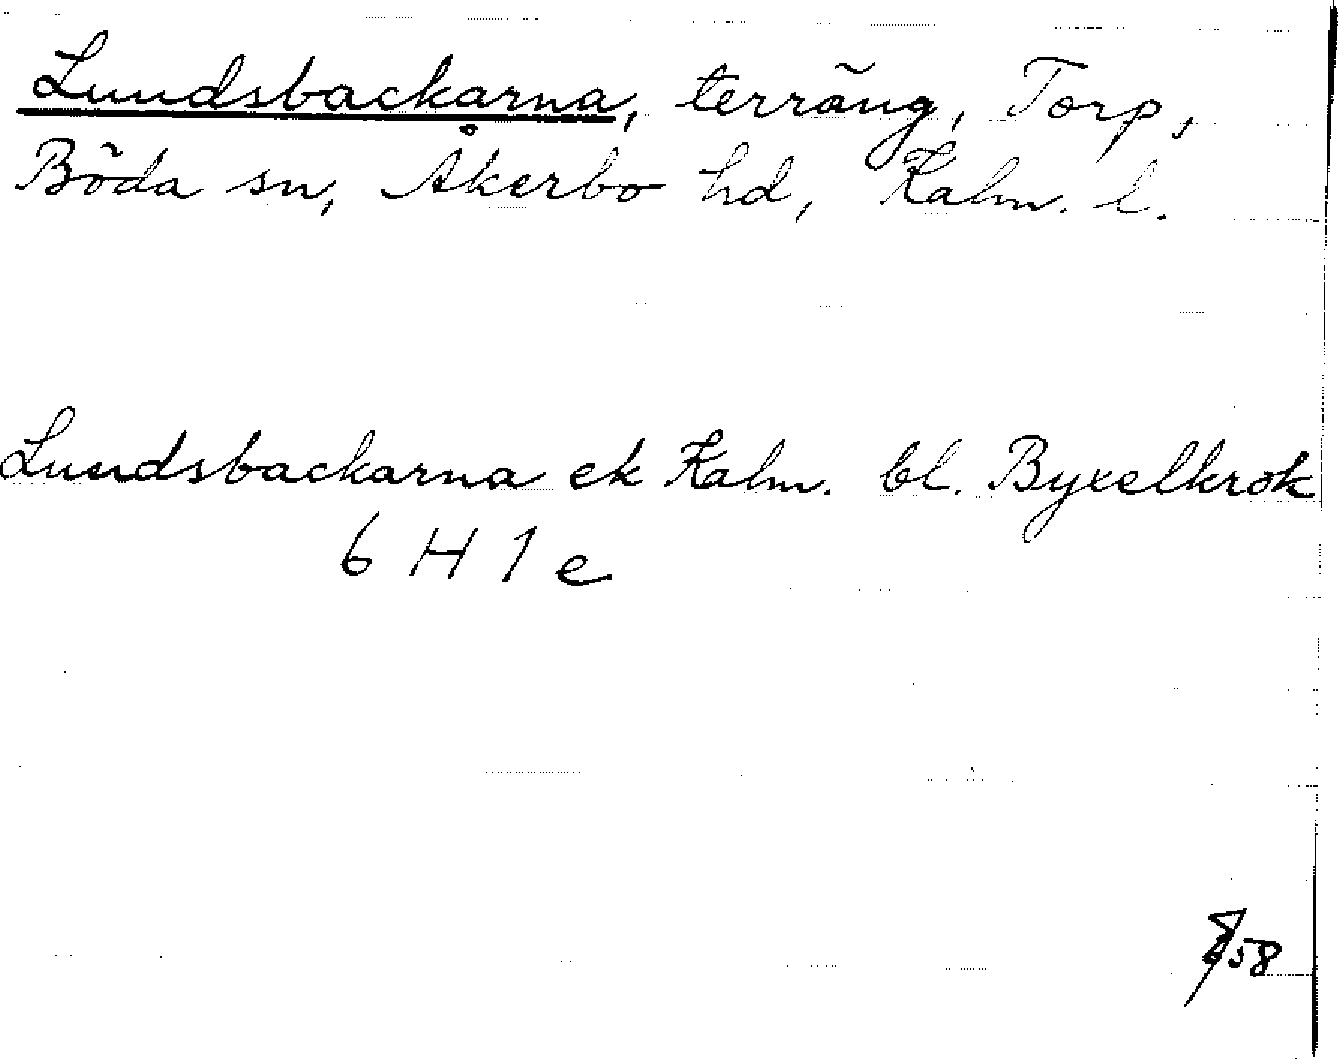 Lundsbackarna, terräng, Torp,
Böda sn, Åkerbo hd, Kalm. l.
Lundsbackarna ek Kalm. bl. Byxelkrok
6 H 1 e
58